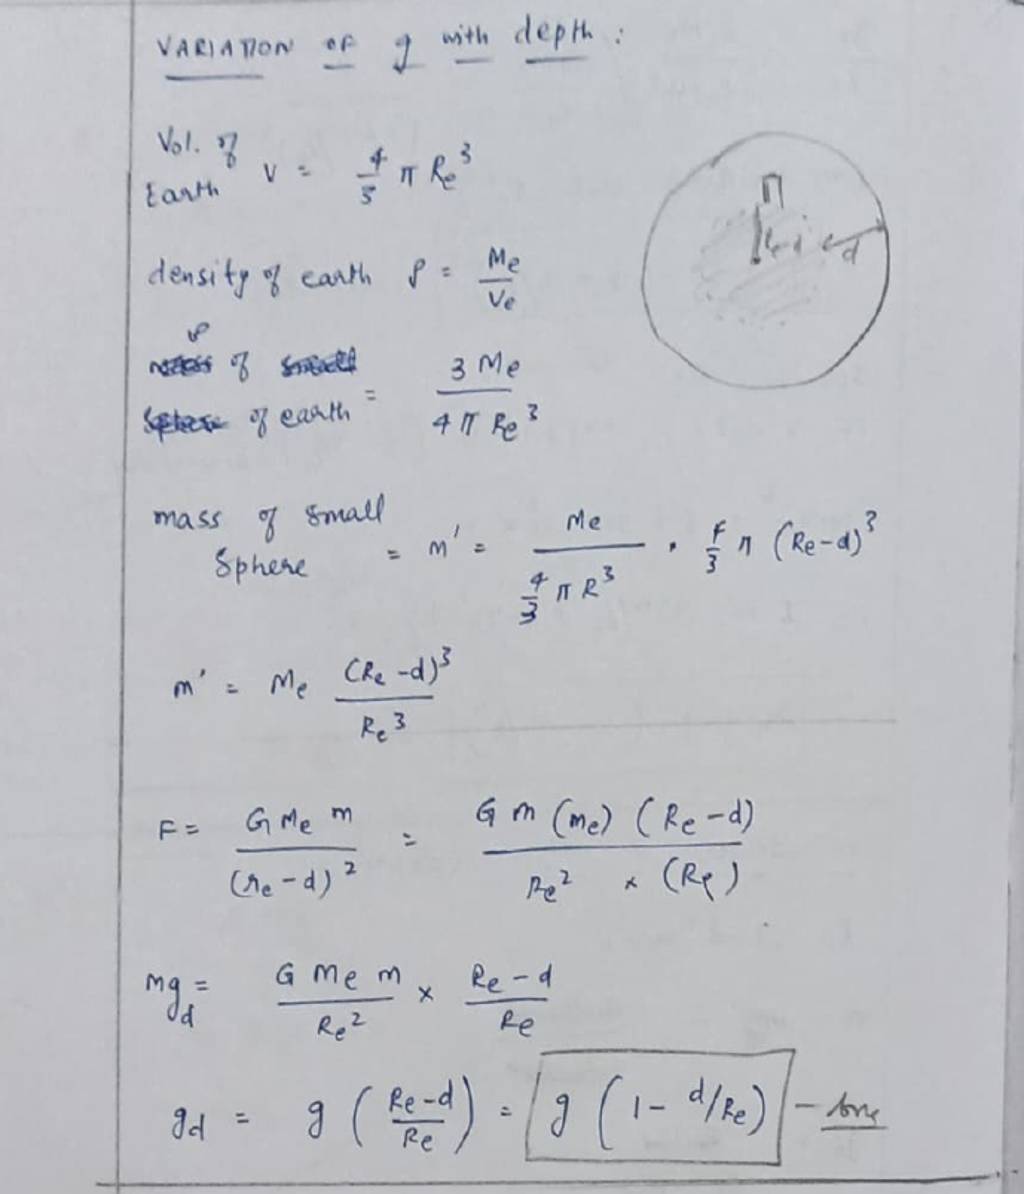 VARIATION OF g with depth :
Vol. of Earth V = 4/3 π Re³
density of earth ρ = Me/Ve
ρ
of
of earth = 3 Me / 4 π Re³
mass of small Sphere = m' = Me / (4/3 π R³) . 4/3 π (Re-d)³
m' = Me (Re-d)³ / Re³
F = G Me m / (re-d)² = G m (me) (Re-d) / Re² x (Re)
mg_d = G Me m / Re² x Re-d / Re
gd = g (Re-d / Re) = g (1- d/Re)
d